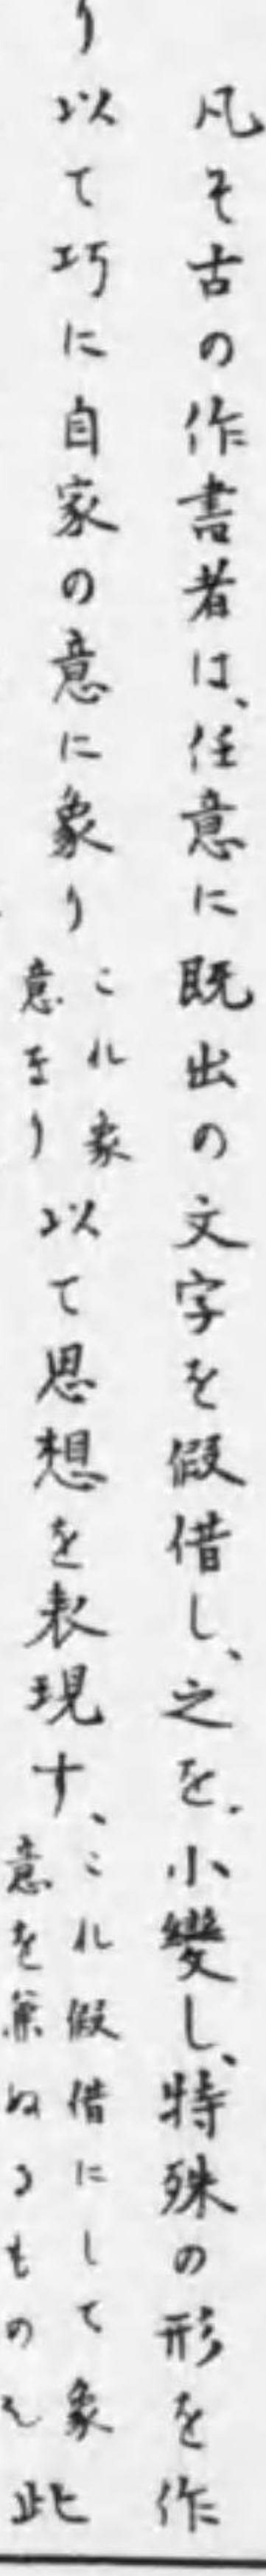 凡そ古の作書者は、任意に既出の文字を假借し、之を小變し、特殊の形を作
り以て巧に自家の意に象り
これ象
意なり
以て思想を表現す、
これ假借にして象
意を兼ぬるもの也
此